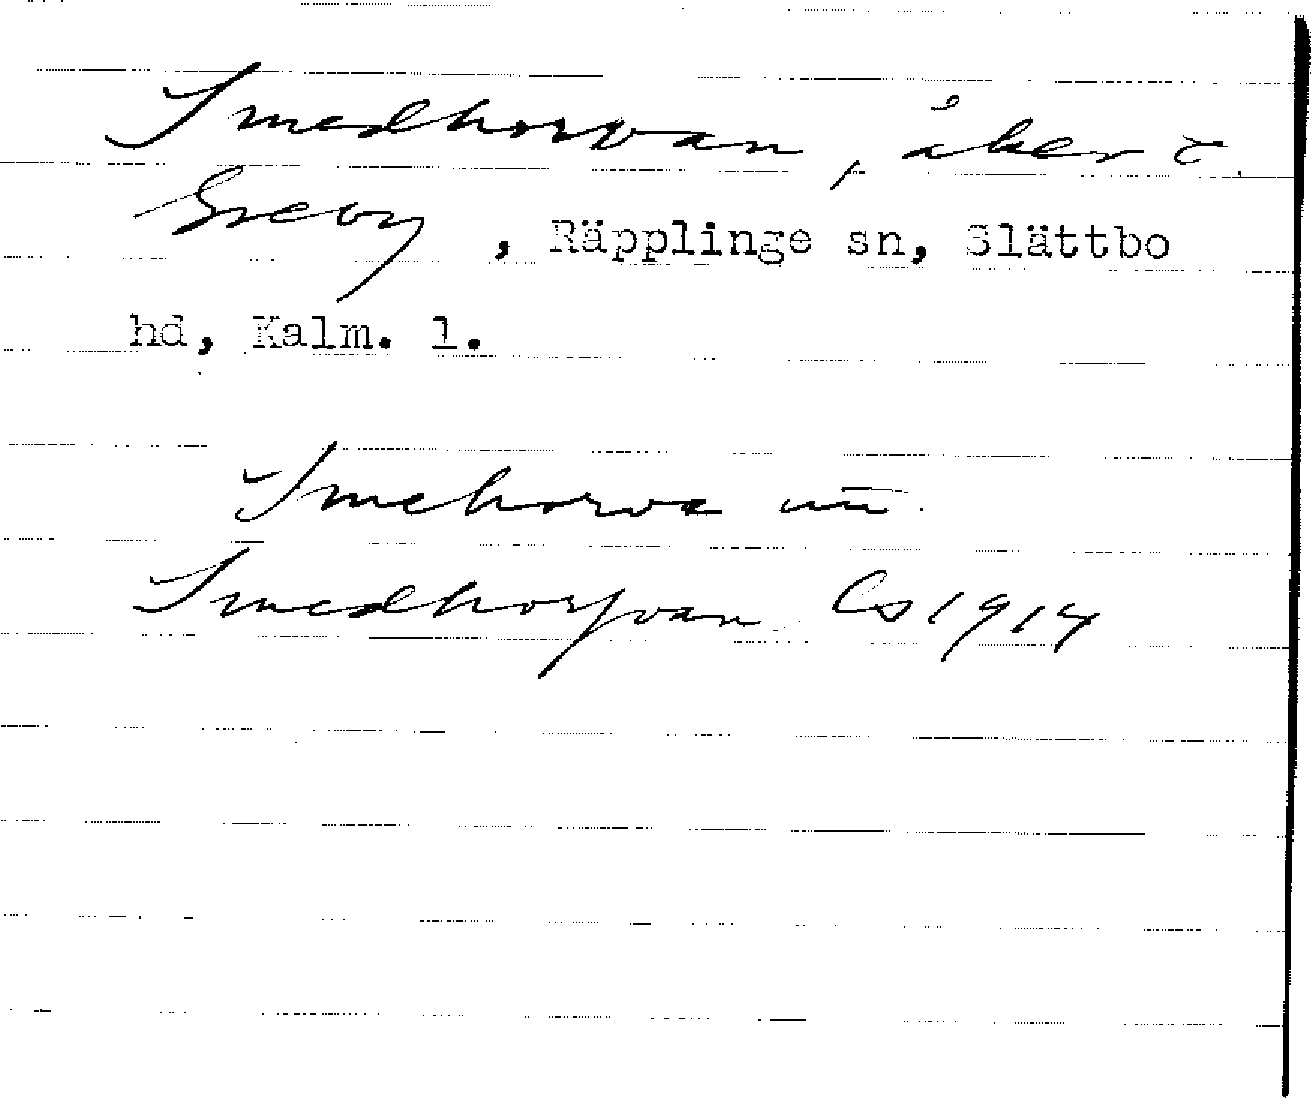 Smedhorvan, åker
Greby, Räpplinge sn, Slättbo
hd, Kalm. l.
Smehorva
Smedhorfvan Ls 1914